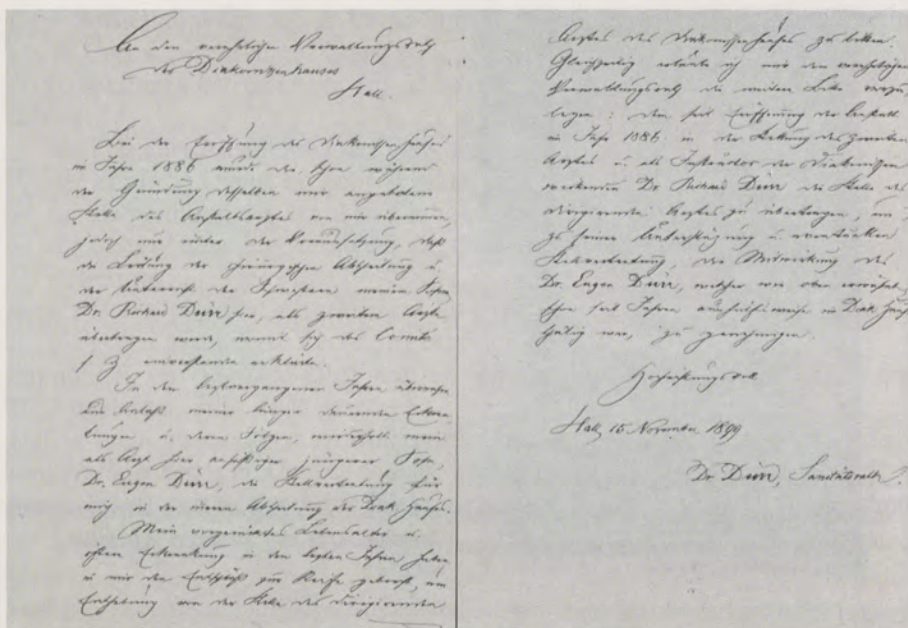 An den verehrlichen Verwaltungsrath
des Diakonissenhauses
Hall.
Bei der Eröffnung des Diakonissenhauses
im Jahre 1886 wurde die schon während
der Gründung desselben mir angebotene
Stelle des Anstaltsarztes von mir übernommen,
jedoch nur unter der Voraussetzung, daß
die Leitung der chirurgischen Abtheilung u.
der Unterricht der Schwestern meinem Sohn
Dr. Richard Dürr hier, als zweitem Arzte
übertragen werde, womit sich das Comité
s. Z. einverstanden erklärte.
In den letztvergangenen Jahren übernahm
aus Anlaß meiner länger dauernden Erkran-
kungen u. deren Folgen, wiederholt mein
als Arzt hier ansäßiger jüngerer Sohn,
Dr. Eugen Dürr, die Stellvertretung für
mich in der inneren Abtheilung des Diak. Hauses.
Mein vorgerücktes Lebensalter u.
öftere Erkrankung in den letzten Jahren haben
in mir den Entschluß zur Reife gebracht, um
Enthebung von der Stelle des dirigirenden
Arztes des Diakonissenhauses zu bitten.
Gleichzeitig erlaube ich mir dem verehrlichen
Verwaltungsrath die weitere Bitte vorzu-
legen: dem seit Eröffnung der Anstalt
im Jahr 1886 in der Stellung des zweiten
Arztes u. als Instruktor der Diakonissen
wirkenden Dr. Richard Dürr die Stelle des
dirigirenden Arztes zu übertragen, und
zu seiner Unterstützung u. eventuellen
Stellvertretung, die Mitwirkung des
Dr. Eugen Dürr, welcher wie oben erwähnt,
schon seit Jahren aushilfsweise im Diak. Hause
thätig war, zu genehmigen.
Hochachtungsvoll
Hall, 15. November 1899
Dr. Dürr, Sanitätsrath.